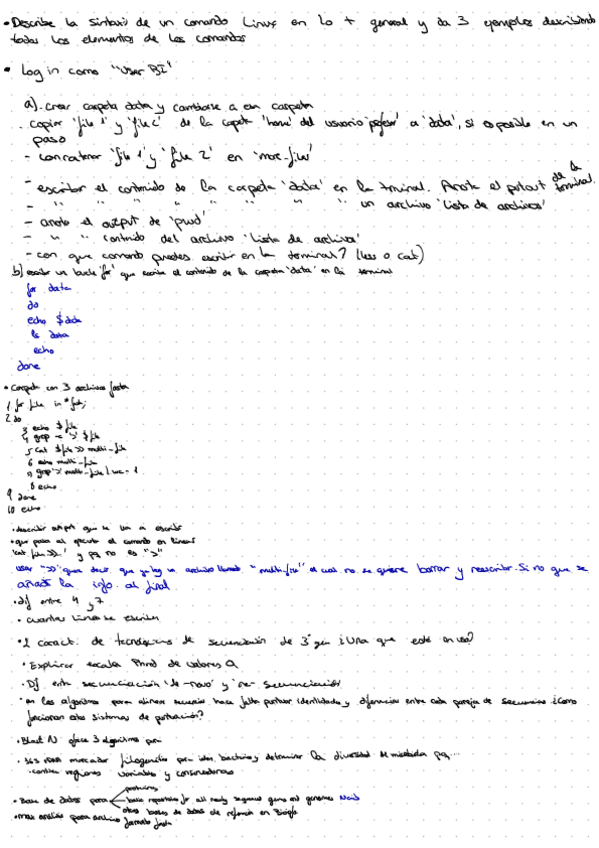 • Describe la sintaxis de un comando Linux en lo + general y da 3 ejemplos describiendo
todos los elementos de los comandos
• Log in como "User BI"
a). crear carpeta data y cambiarse a esa carpeta
- copiar 'file 1' y 'file 2' de la carpeta 'home' del usuario 'profesor' a 'data', si es posible en un
paso
- concatenar 'file 1' y 'file 2' en 'more_files'
- escribir el contenido de la carpeta 'data' en la terminal. Anote el de la terminal.
- " " " " " " " un archivo 'lista de archivos'
- anote el output de 'pwd'
- " " contenido del archivo 'lista de archivos'
- con que comando puedes escribir en la terminal? (less o cat)
b) escribir un bucle 'for' que escriba el contenido de la carpeta 'data' en la terminal
for data
do
echo $data
ls data
echo
done
• Carpeta con 3 archivos fasta
1 for file in *
2 do
3 echo $file
4 grep -c '>' $file
5 cat $file >> multi_file
6 echo multi_file
7 grep '>' multi_file | wc -l
8 echo
9 done
10 echo
• describir output que se va a escribir
• que pasa al ejecutar el comando en linea 5
'cat file >>' y pq no es ">"
usar ">>" quiere decir que ya hay un archivo llamado "multi_file" el cual no se quiere borrar y reescribir. Si no que se
añade la info. al final
• dif entre 4 y 7
• cuantas lineas se escriben
• 2 caract. de tecnologias de secuenciación de 3ª gen ¿Una que esté en uso?
• Explicar escala Phred de valores Q
• Dif entre secuenciación 'de-novo' y 're-secuenciación'
• en los algoritmos para alinear secuencias hace falta puntuar identidades y diferencias entre cada pareja de secuencias ¿Como
funcionan estos sistemas de puntuación?
• Blast N ofrece 3 algoritmos para
• 16S rRNA marcador filogenetico usado para iden bacterias y determinar la diversidad de microbiota pq...
• contiene regiones variables y conservadoras
• Base de datos para
proteinas
base repositorio for all newly sequenced genes and genomes Ncbi
otras bases de datos de referencia en Biología
• análisis para archivo formato fasta